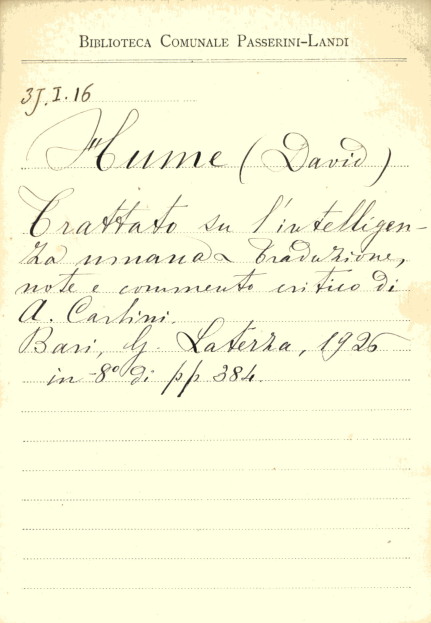 BIBLIOTECA COMUNALE PASSERINI-LANDI
3J.I.16
Hume (David)
Trattato su l'intelligen-
za umana Traduzione,
note e commento critico di
A. Carlini.
Bari, G. Laterza, 1926
in -8º di pp 384.